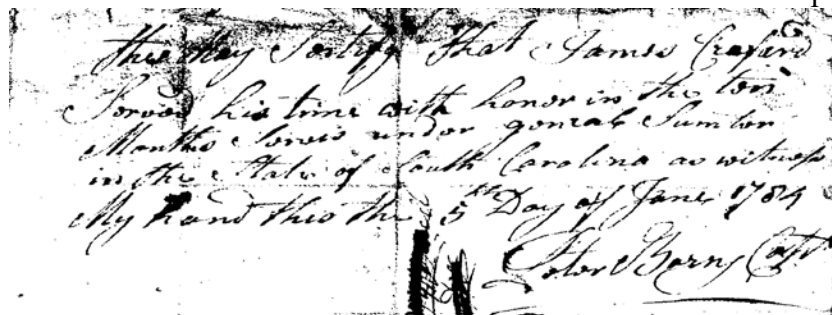 this May Sertify that James Crafard
Served his time with honor in the ten
Months Servis under genral Sumter
in the State of South Carolina as witness
My hand this the 5th Day of Jane 1784
Peter Berny Capt